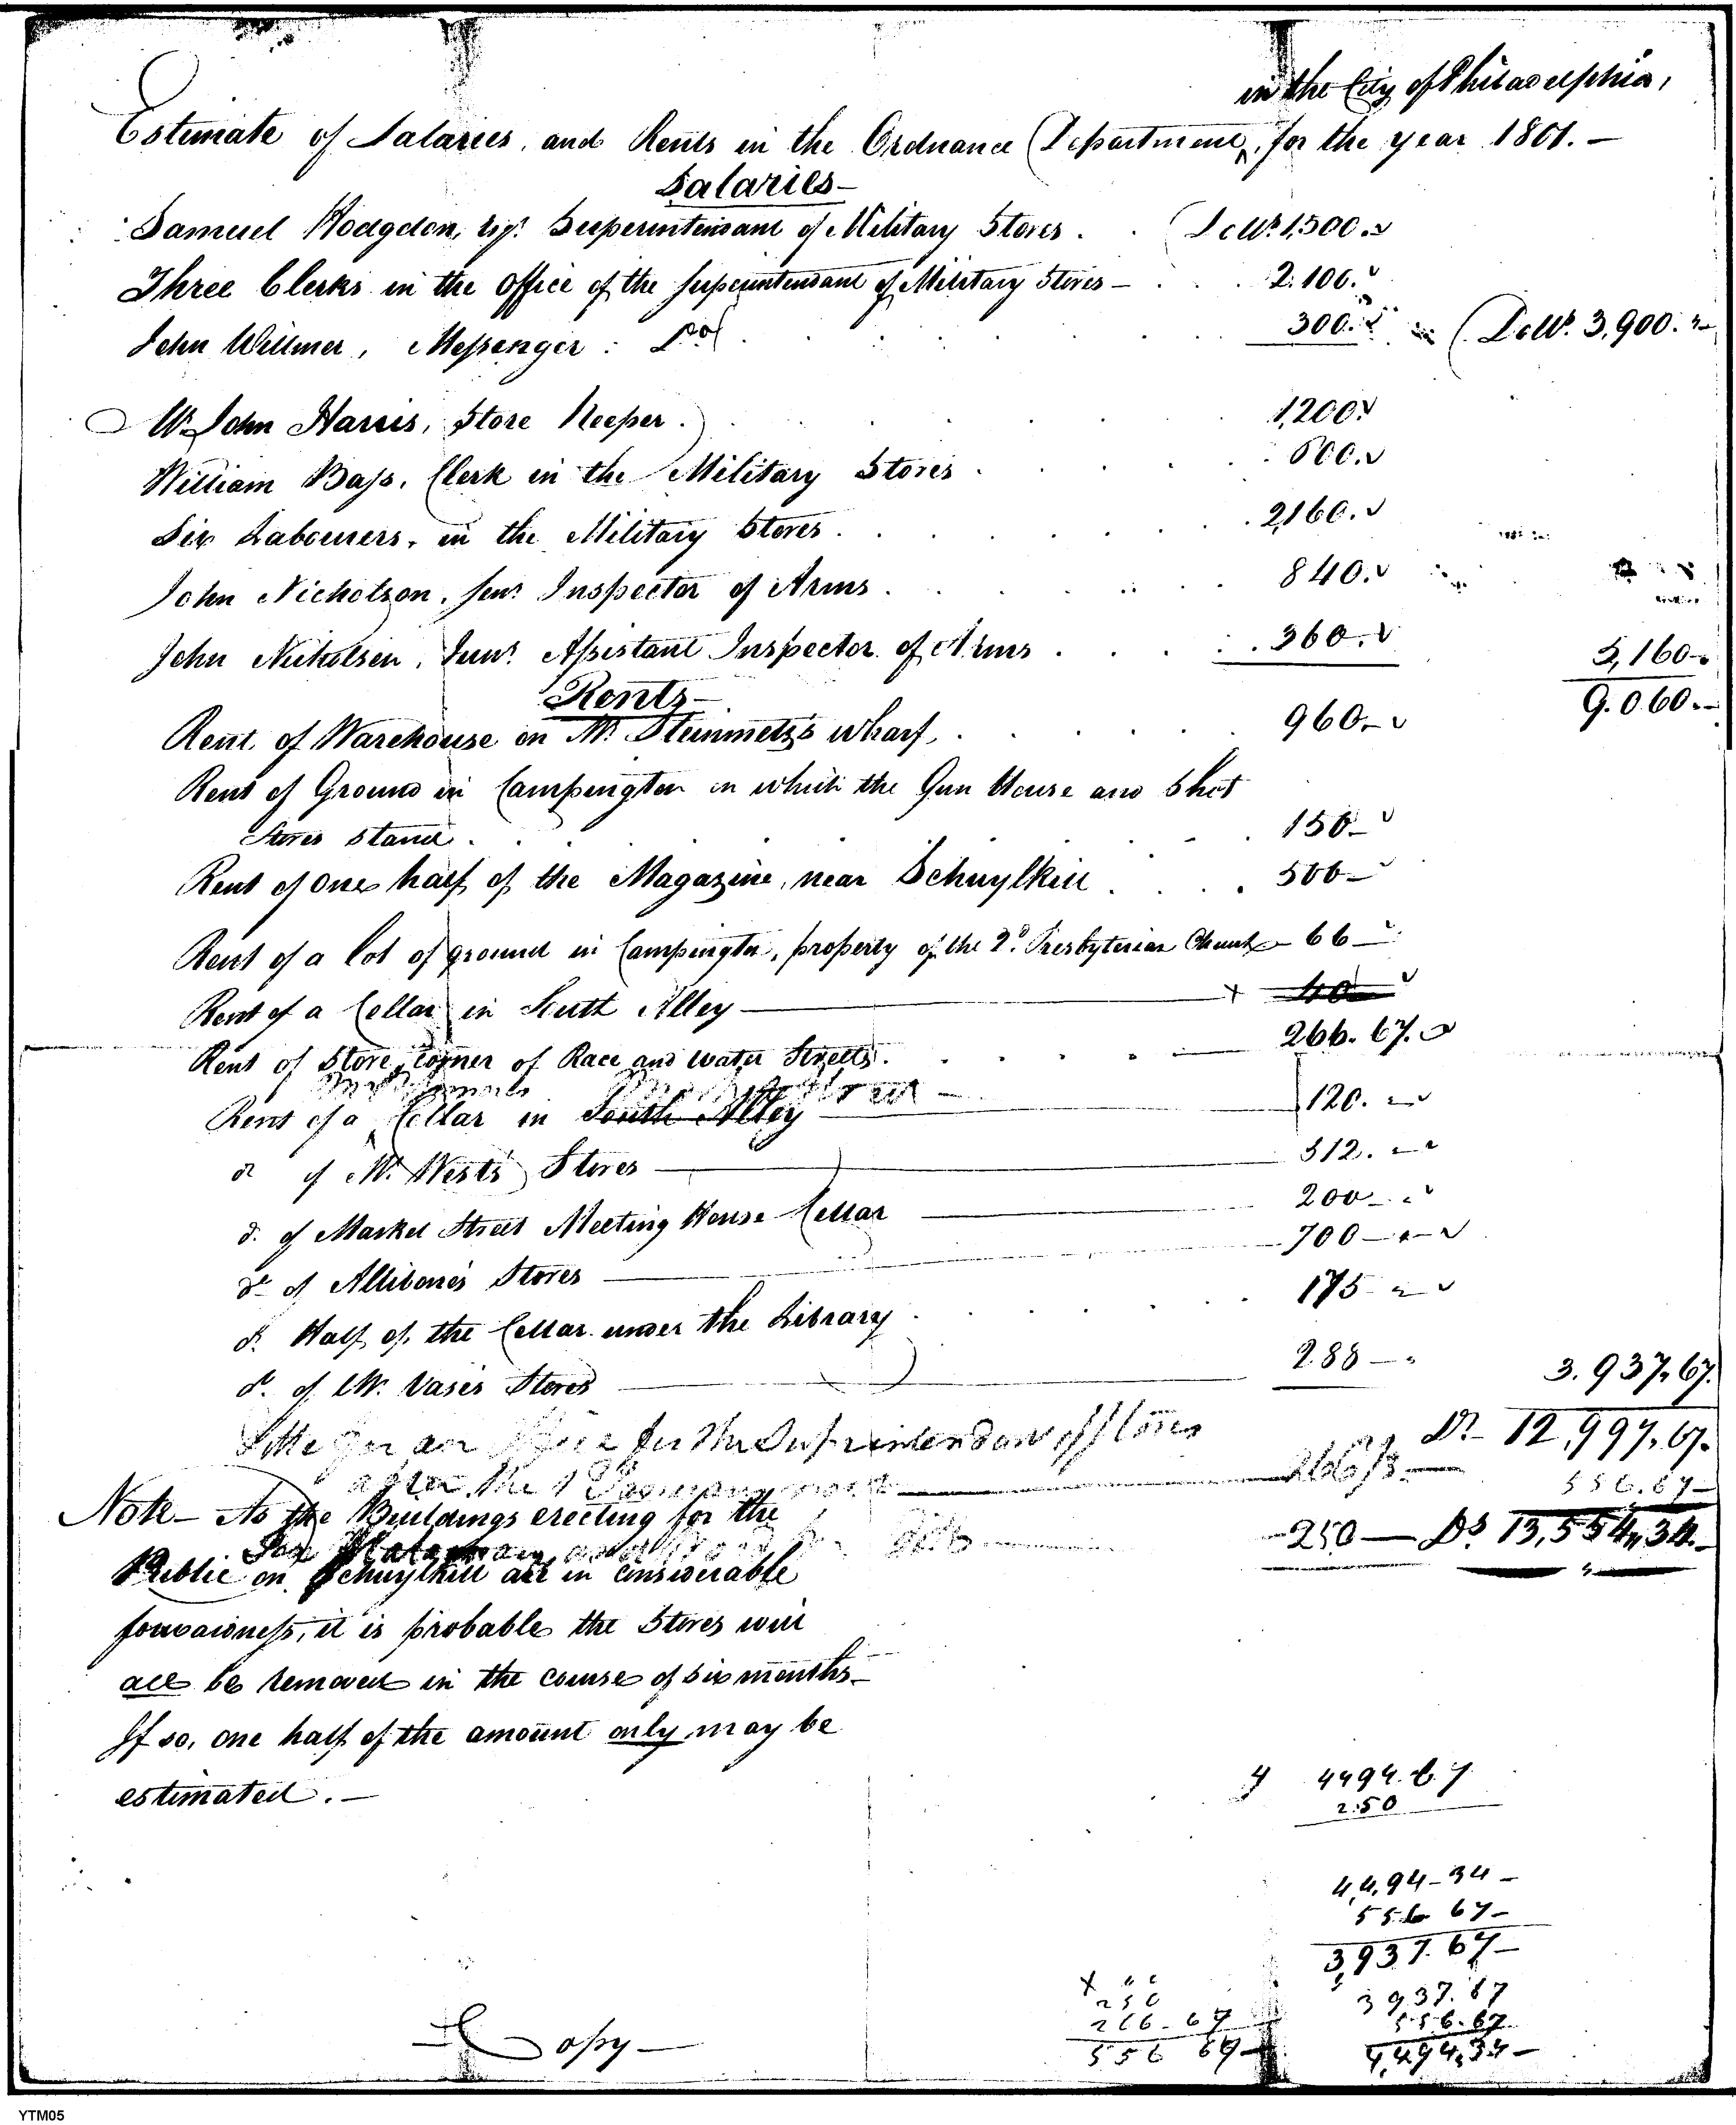 in the City of Philadelphia,
Estimate of Salaries, and Rents in the Ordnance Department, for the year 1801. —
Salaries —
Samuel Hodgdon, Esqr. Superintendant of Military Stores . . Dolls. 1,500.
Three Clerks in the Office of the Superintendant of Military Stores — . . . 2.100.
John Willmer, Messenger : Do. . . . . . 300. Dolls. 3,900.
W. John Harris, Store Keeper . . . . . 1,200
William Bass, Clerk in the Military Stores . . . . . 600.
Six Labourers, in the Military Stores . . . . . 2,160.
John Nicholson, Senr. Inspector of Arms . . . . . 840.
John Nicholson, Junr. Assistant Inspector of Arms . . . . . 360. 5,160 —
9.060. —
Rents —
Rent of Warehouse on Mr. Steinmetz's wharf, . . . . . 960 —
Rent of Ground in Campington on which the Gun House and Shot
Stores stand . . . . . 150 —
Rent of one half of the Magazine, near Schuylkill . . . . 500 —
Rent of a lot of ground in Campington, property of the 2d. Presbyterian Church — 66 —
Rent of a Cellar in South Alley — x 40
Rent of Store, corner of Race and Water Streets . . . . . 266. 67.
Rent of a Cellar in South Alley — 120.
do of Mr. West's Stores — 512.
do. of Market Street Meeting House Cellar — 200 —
do of Allibone's Stores — 700 —
do. Half of the Cellar under the Library . . . . . 175
do. of Mr. Vases Stores — 288 — 3.937.67.
Ds. 12,997.67.
for an Office for the Superintendant of Stores
after the 1 — 266 67 — 556.67 —
Note — As the Buildings erecting for the
ditto — 250 — Ds. 13,554,,34. —
Public on Schuylkill are in considerable
forwardness, it is probable the Stores will
all be removed in the course of six months —
If so, one half of the amount only may be
estimated. —
4494.67
250
4,494 — 34 —
556 67 —
3,937. 67 —
3937.67
556.67
4,494,34 —
x 40
250
266. 67
556 67 —
Copy —
YTM05